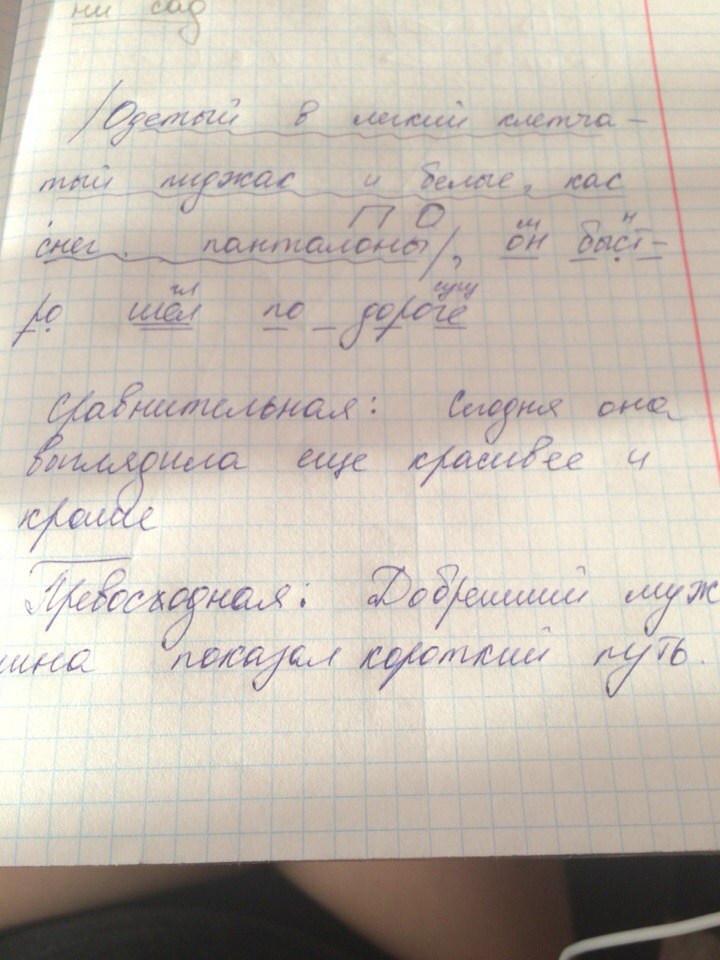 ни сад
/Одетый в легкий клетча-
тый пиджак и белые, как
снег, панталоны/, он быст-
П О
м н
ро шёл по дороге
гл сущ
Сравнительная: Сегодня она
выглядила еще красивее и
Превосходная: Добрейший муж
чина показал короткий путь.